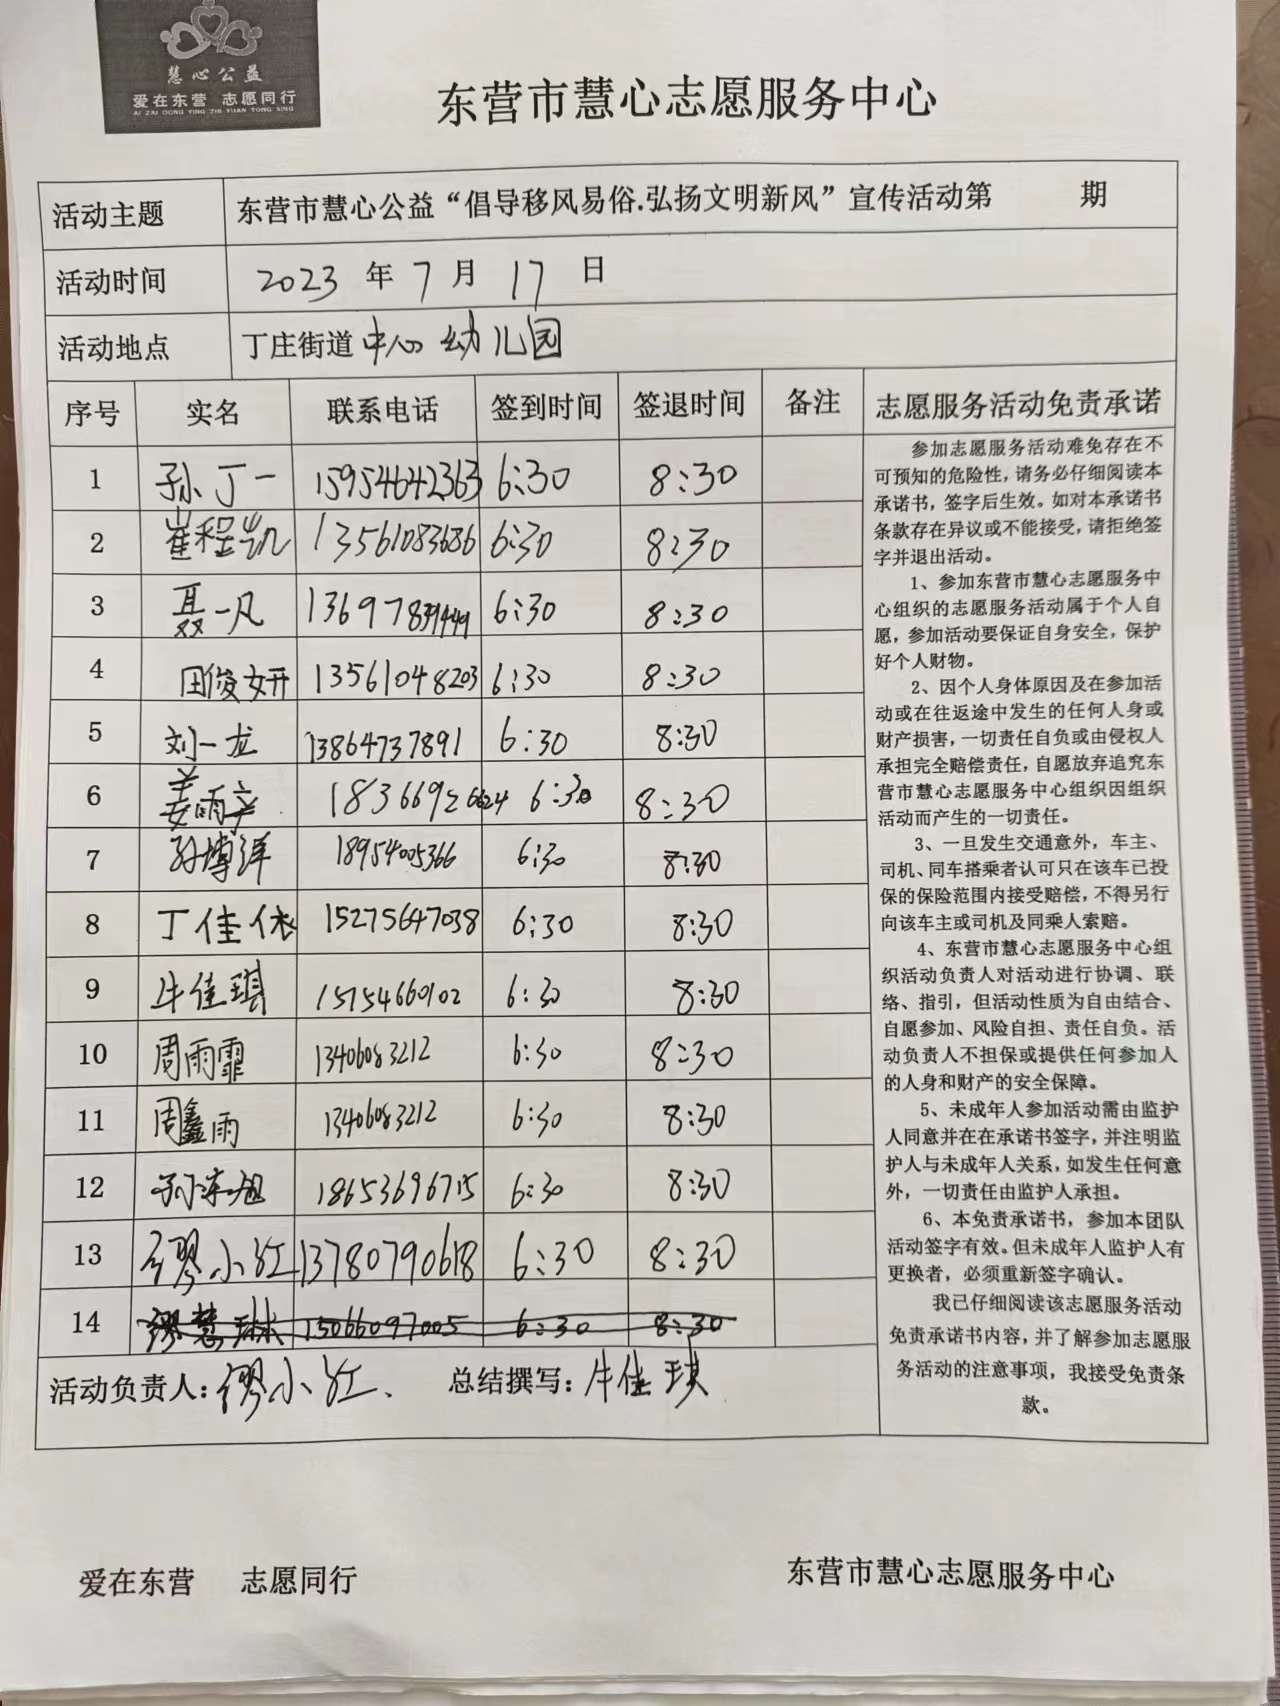 慧心公益
爱在东营 志愿同行
AI ZAI DONG YING ZHI YUAN TONG XING
东营市慧心志愿服务中心
活动主题 东营市慧心公益“倡导移风易俗.弘扬文明新风”宣传活动第 期
活动时间 2023 年 7 月 17 日
活动地点 丁庄街道中心幼儿园
序号 实名 联系电话 签到时间 签退时间 备注 志愿服务活动免责承诺
1 孙丁一 15954642363 6:30 8:30
2 崔程凯 13561083686 6:30 8:30
3 聂一凡 13697839449 6:30 8:30
4 田俊妍 13561048203 6:30 8:30
5 刘一龙 13864737891 6:30 8:30
6 姜雨辛 18366926624 6:30 8:30
7 孙博洋 18954005366 6:30 8:30
8 丁佳依 15275647038 6:30 8:30
9 牛佳琪 15754660102 6:30 8:30
10 周雨霏 13406083212 6:30 8:30
11 周鑫雨 13406083212 6:30 8:30
12 孙 旭 18653696715 6:30 8:30
13 缪小红 13780790618 6:30 8:30
14 缪慧琳 15066097005 6:30 8:30
活动负责人：缪小红、 总结撰写：牛佳琪
参加志愿服务活动难免存在不
可预知的危险性，请务必仔细阅读本
承诺书，签字后生效。如对本承诺书
条款存在异议或不能接受，请拒绝签
字并退出活动。
1、参加东营市慧心志愿服务中
心组织的志愿服务活动属于个人自
愿，参加活动要保证自身安全，保护
好个人财物。
2、因个人身体原因及在参加活
动或在往返途中发生的任何人身或
财产损害，一切责任自负或由侵权人
承担完全赔偿责任，自愿放弃追究东
营市慧心志愿服务中心组织因组织
活动而产生的一切责任。
3、一旦发生交通意外，车主、
司机、同车搭乘者认可只在该车已投
保的保险范围内接受赔偿，不得另行
向该车主或司机及同乘人索赔。
4、东营市慧心志愿服务中心组
织活动负责人对活动进行协调、联
络、指引，但活动性质为自由结合、
自愿参加、风险自担、责任自负。活
动负责人不担保或提供任何参加人
的人身和财产的安全保障。
5、未成年人参加活动需由监护
人同意并在在承诺书签字，并注明监
护人与未成年人关系，如发生任何意
外，一切责任由监护人承担。
6、本免责承诺书，参加本团队
活动签字有效。但未成年人监护人有
更换者，必须重新签字确认。
我已仔细阅读该志愿服务活动
免责承诺书内容，并了解参加志愿服
务活动的注意事项，我接受免责条
款。
爱在东营 志愿同行 东营市慧心志愿服务中心